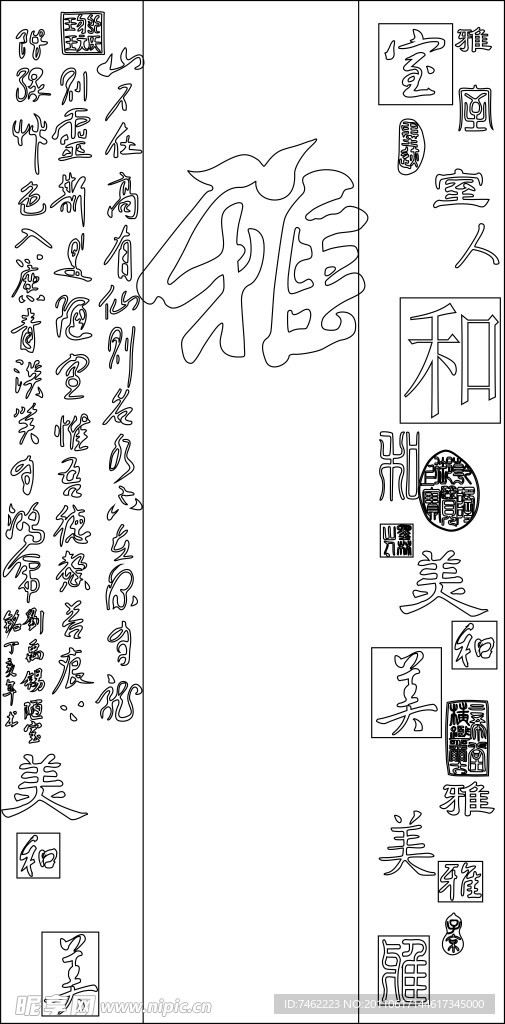 山不在高有仙则名水不在深有龙
则靈斯是陋室惟吾德馨苔痕上
階綠艸色入簾青談笑有鴻儒
劉禹锡陋室
銘丁亥年
美
和
美
雅
室
雅
室
室
人
和
和
美
和
美
雅
美
雅
雅
昵享网 www.nipic.cn
ID:7462223 NO:20110617144617345000